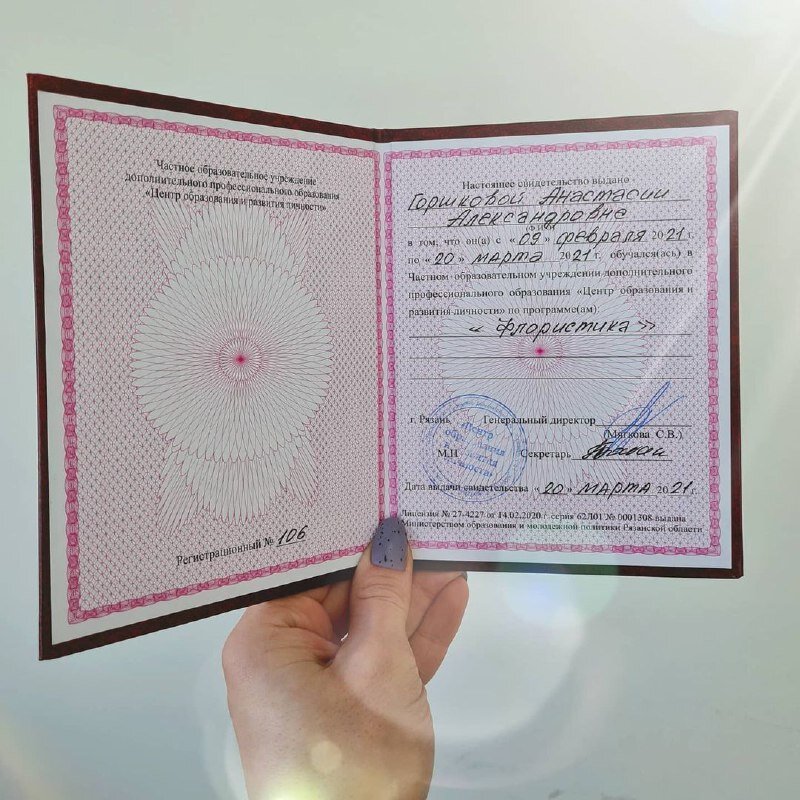 Частное образовательное учреждение
дополнительного профессионального образования
«Центр образования и развития личности»
Регистрационный № 106
Настоящее свидетельство выдано
Горшковой Анастасии
Александровне
(Ф.И.О)
в том, что он(а) с «09» февраля 2021 г.
по «20» марта 2021 г. обучался(ась) в
Частном образовательном учреждении дополнительного
профессионального образования «Центр образования и
развития личности» по программе(ам):
« Флористика »
г. Рязань Генеральный директор
(Мягкова С.В.)
М.П Секретарь
Дата выдачи свидетельства «20» марта 2021 г.
Лицензия № 27-4227 от 14.02.2020 г. серия 62Л01 № 0001308 выдана
Министерством образования и молодежной политики Рязанской области